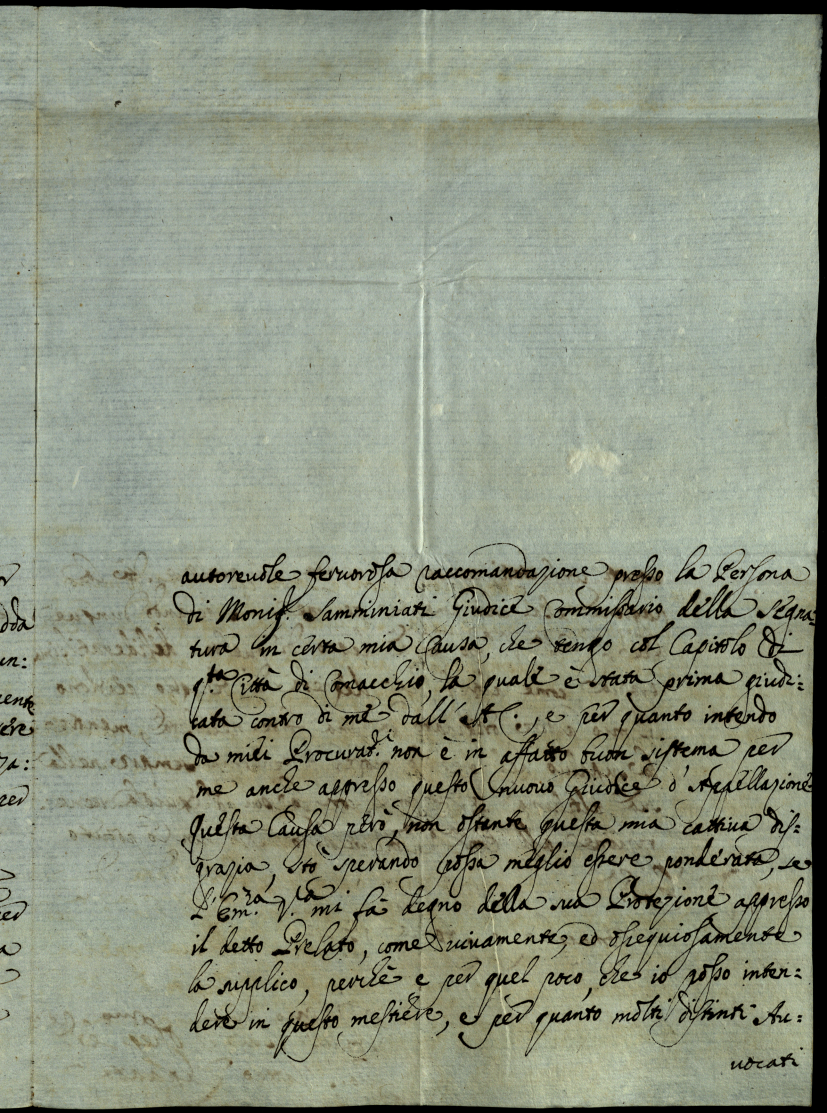 autorevole fervorosa raccomandazione presso la Persona
di Monig.r Samminiati Giudice Commissario della Segna=
tura in certa mia Causa, che tengo col Capitolo di
q.ta Città di Comacchio, la quale è stata prima giudi:
cata contro di me dall' A. C:, e per quanto intendo
da miei Procurat.i non è in affatto buon sistema per
me anche appresso questo nuovo Giudice d'Appellazione
Questa Causa però, non ostante questa mia cattiva dis:
grazia, stò sperando possa meglio essere ponderata, se
l'Em.za V.ra mi fà degno della sua Protezione appresso
il detto Prelato, come vivamente, ed ossequiosamente
la supplico, perchè e per quel poco, che io posso inten=
dere in questo mestiere, e per quanto molti distinti Au:
vocati